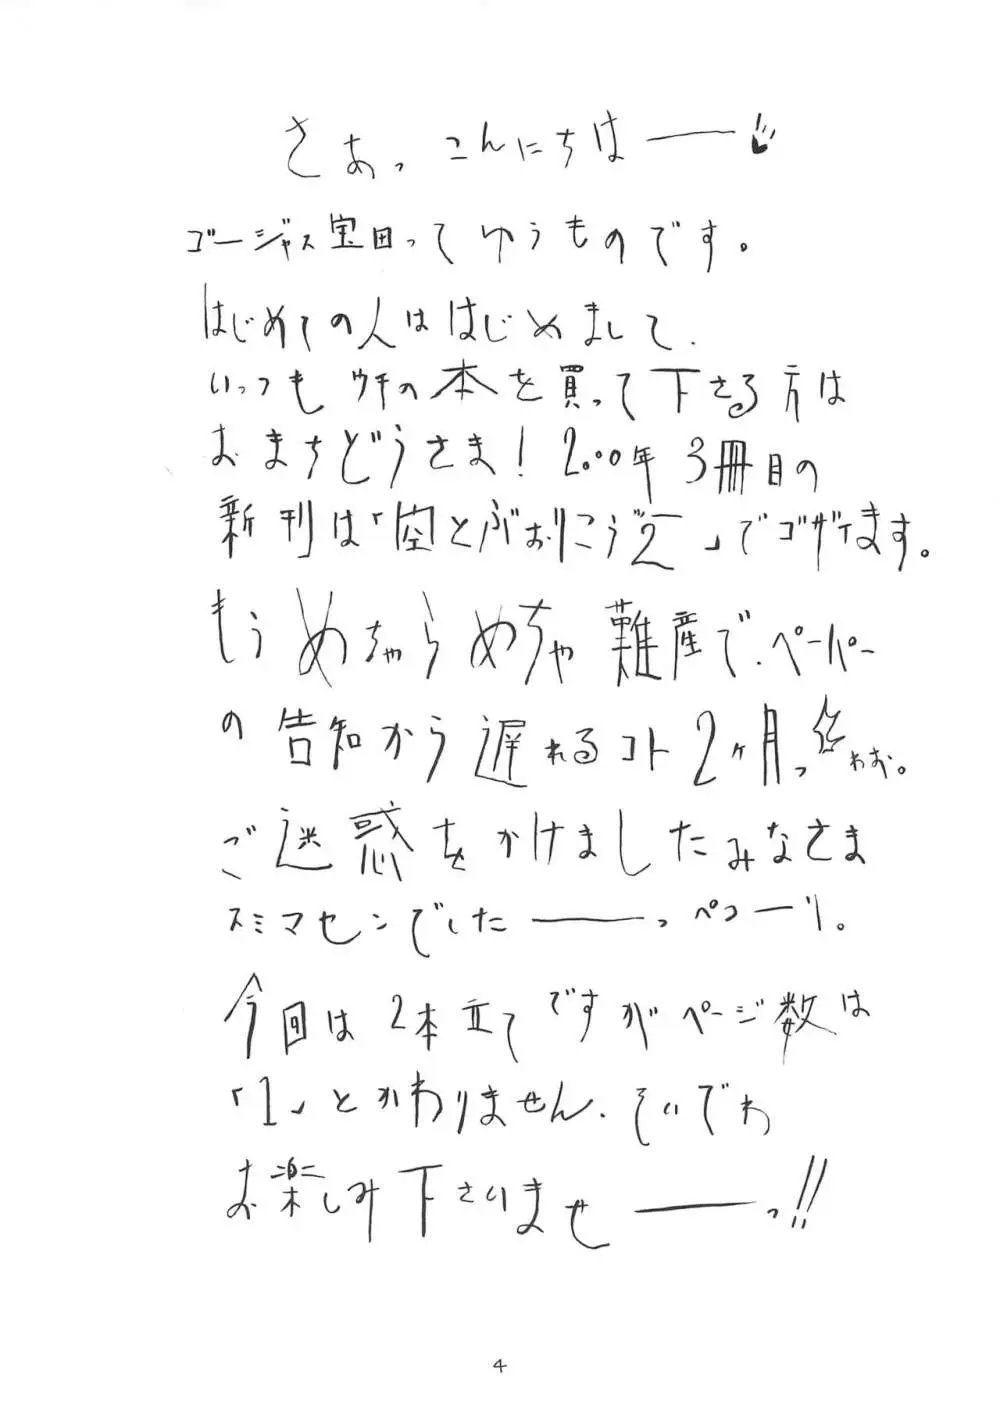 さあっ こんにちはー
ゴージャス宝田ってゆうものです。
はじめての人ははじめまして、
いっつもウチの本を買って下さる方は
おまちどうさま!2000年3冊目の
新刊は「空とぶおりこう2」でゴザイます。
もうめちゃらめちゃ難産で、ペーパー
の告知から遅れるコト2ヶ月っわお。
ご迷惑をかけましたみなさま
スミマセンでしたーっペコーリ。
今回は2本立てですがページ数は
「1」とかわりません、そいでわ
お楽しみ下さいませーっ!!
4